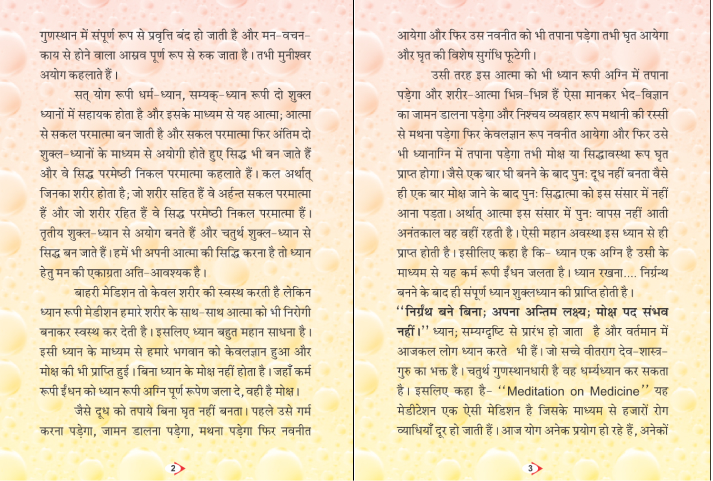 गुणस्थान में संपूर्ण रूप से प्रवृत्ति बंद हो जाती है और मन-वचन-
काय से होने वाला आस्रव पूर्ण रूप से रुक जाता है। तभी मुनीश्वर
अयोग कहलाते हैं।
सत् योग रूपी धर्म-ध्यान, सम्यक्-ध्यान रूपी दो शुक्ल
ध्यानों में सहायक होता है और इसके माध्यम से यह आत्मा; आत्मा
से सकल परमात्मा बन जाती है और सकल परमात्मा फिर अंतिम दो
शुक्ल-ध्यानों के माध्यम से अयोगी होते हुए सिद्ध भी बन जाते हैं
और वे सिद्ध परमेष्ठी निकल परमात्मा कहलाते हैं। कल अर्थात्
जिनका शरीर होता है; जो शरीर सहित हैं वे अर्हन्त सकल परमात्मा
हैं और जो शरीर रहित हैं वे सिद्ध परमेष्ठी निकल परमात्मा हैं।
तृतीय शुक्ल-ध्यान से अयोग बनते हैं और चतुर्थ शुक्ल-ध्यान से
सिद्ध बन जाते हैं। हमें भी अपनी आत्मा की सिद्धि करना है तो ध्यान
हेतु मन की एकाग्रता अति-आवश्यक है।
बाहरी मेडिशन तो केवल शरीर की स्वस्थ करती है लेकिन
ध्यान रूपी मेडीशन हमारे शरीर के साथ-साथ आत्मा को भी निरोगी
बनाकर स्वस्थ कर देती है। इसलिए ध्यान बहुत महान साधना है।
इसी ध्यान के माध्यम से हमारे भगवान को केवलज्ञान हुआ और
मोक्ष की भी प्राप्ति हुई। बिना ध्यान के मोक्ष नहीं होता है। जहाँ कर्म
रूपी ईंधन को ध्यान रूपी अग्नि पूर्ण रूपेण जला दे, वही है मोक्ष।
जैसे दूध को तपाये बिना घृत नहीं बनता। पहले उसे गर्म
करना पड़ेगा, जामन डालना पड़ेगा, मथना पड़ेगा फिर नवनीत
2
आयेगा और फिर उस नवनीत को भी तपाना पड़ेगा तभी घृत आयेगा
और घृत की विशेष सुगंधि फूटेगी।
उसी तरह इस आत्मा को भी ध्यान रूपी अग्नि में तपाना
पड़ेगा और शरीर-आत्मा भिन्न-भिन्न हैं ऐसा मानकर भेद-विज्ञान
का जामन डालना पड़ेगा और निश्चय व्यवहार रूप मथानी की रस्सी
से मथना पड़ेगा फिर केवलज्ञान रूप नवनीत आयेगा और फिर उसे
भी ध्यानाग्नि में तपाना पड़ेगा तभी मोक्ष या सिद्धावस्था रूप घृत
प्राप्त होगा। जैसे एक बार घी बनने के बाद पुनः दूध नहीं बनता वैसे
ही एक बार मोक्ष जाने के बाद पुनः सिद्धात्मा को इस संसार में नहीं
आना पड़ता। अर्थात् आत्मा इस संसार में पुनः वापस नहीं आती
अनंतकाल वह वहीं रहती है। ऐसी महान अवस्था इस ध्यान से ही
प्राप्त होती है। इसीलिए कहा है कि- ध्यान एक अग्नि है उसी के
माध्यम से यह कर्म रूपी ईंधन जलता है। ध्यान रखना.... निर्ग्रन्थ
बनने के बाद ही संपूर्ण ध्यान शुक्लध्यान की प्राप्ति होती है।
‘‘निर्ग्रंथ बने बिना; अपना अन्तिम लक्ष्य; मोक्ष पद संभव
नहीं।’’ ध्यान; सम्यग्दृष्टि से प्रारंभ हो जाता है और वर्तमान में
आजकल लोग ध्यान करते भी हैं। जो सच्चे वीतराग देव-शास्त्र-
गुरु का भक्त है। चतुर्थ गुणस्थानधारी है वह धर्म्यध्यान कर सकता
है। इसलिए कहा है- ‘‘Meditation on Medicine’’ यह
मेडीटेशन एक ऐसी मेडिशन है जिसके माध्यम से हजारों रोग
व्याधियाँ दूर हो जाती हैं। आज योग अनेक प्रयोग हो रहे हैं, अनेकों
3